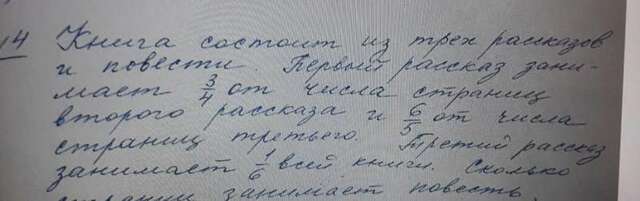 14 Книга состоит из трех рассказов
и повести. Первый рассказ зани-
мает 3/4 от числа страниц
второго рассказа и 6/5 от числа
страниц третьего. Третий рассказ
занимает 1/6 всей книги. Сколько
страниц занимает повесть,